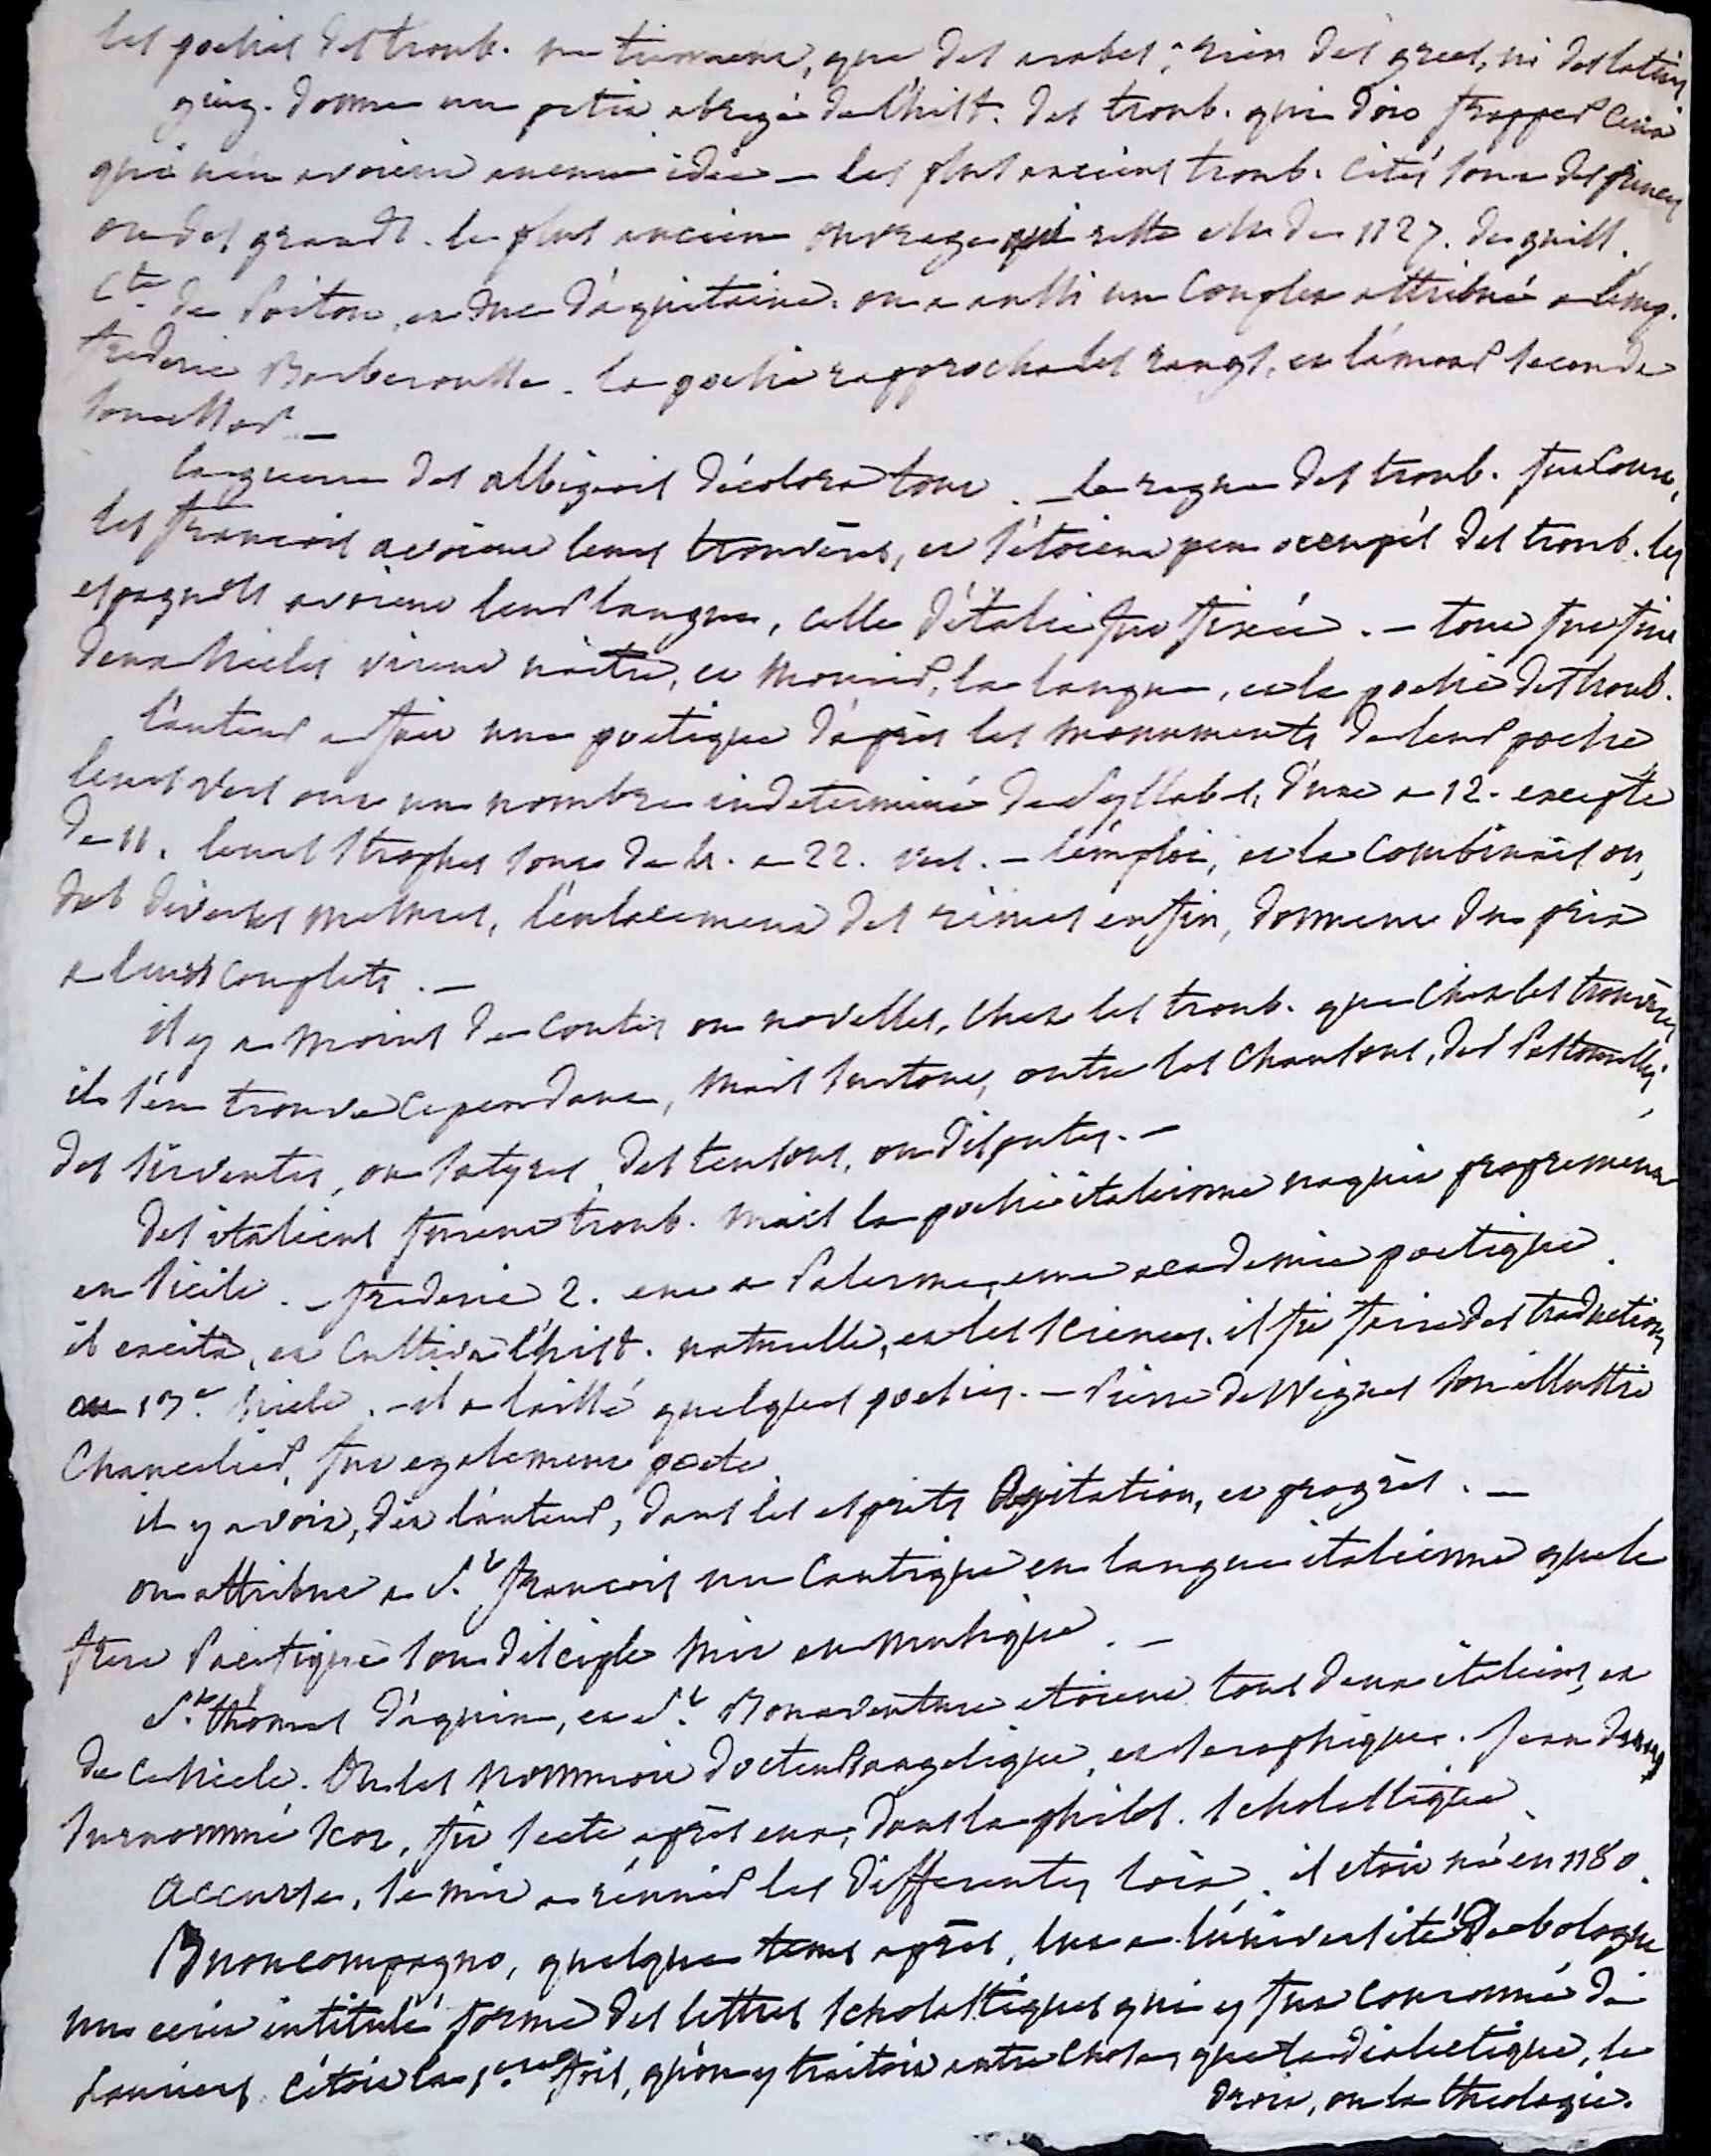 les poesies des troub. ne tiennent, que des arabes ; rien des grecs, ni des latins.
ging. donne un petit abregé de l'hist. des troub. qui doit frapper ceux
qui n'en avoient aucune idée — les plus anciens troub. cités sont des princes
ou des grands. le plus ancien ouvrage qui reste est de 1127. de guill.
Cte. de Poitou, et duc d'aquitaine. on a aussi un couplet attribué a l'emp.
frederic Barberousse. la poesie rapprocha les rangs, et l'amour seconda
—
la guerre des albigeois décolora tout. — le regne des troub. fut court,
les françois avoient leurs trouvères, et s'étoient peu occupés des troub. les
espagnols avoient leur langue, celle d'italie fut fixée. — tout fut fini
deux siecles virent naitre, et mourir, la langue, et la poesie des troub.
l'auteur a fait une poetique d'après les monuments de leur poesie
leurs vers ont un nombre indeterminé de syllabes, d'une a 12. excepté
de 11. leurs strophes sont de a 22. vers. — l'emploi, et la combinaison,
des diverses mesures, l'enlacement des rimes enfin, donnent du prix
a leurs couplets. —
il y a moins de contes ou novelles, chez les troub. que chez les trouvères
il s'en trouve cependant, mais surtout, outre les chansons, des pastourelles,
des sirventes, ou satyres, des tensons, ou disputes. —
des italiens furent troub. mais la poesie italienne naquit proprement
en Sicile. — frederic 2. eut a Palerme, une academie poetique.
il excita, et cultiva l'hist. naturelle, et les sciences. il fit faire des traductions
au 13e. siecle. — il a laissé quelques poesies. — Pierre des Vignes son illustre
Chancelier, fut egalement poete
il y avoit, dit l'auteur, dans les esprits agitation, et progrès. —
on attribue a St. françois un cantique en langue italienne que le
frere Pacifique son disciple mit en musique. —
St. thomas d'aquin, et St. Bonaventure etoient tous deux italiens, et
de ce siecle. On les nommoit docteur angelique, et seraphique. Jean duns
surnommé scot, fit secte après eux, dans la philos. scholastique.
Accurse, se mit a réunir les differentes loix. il etoit né en 1180.
Buoncompagno, quelque tems après, lut a l'université de bologne
un ecrit intitulé forme des lettres scholastiques qui y fut couronné de
lauriers. c'étoit la 1ere fois, qu'on y traitoit autre chose, que la dialectique, le
droit, ou la theologie.